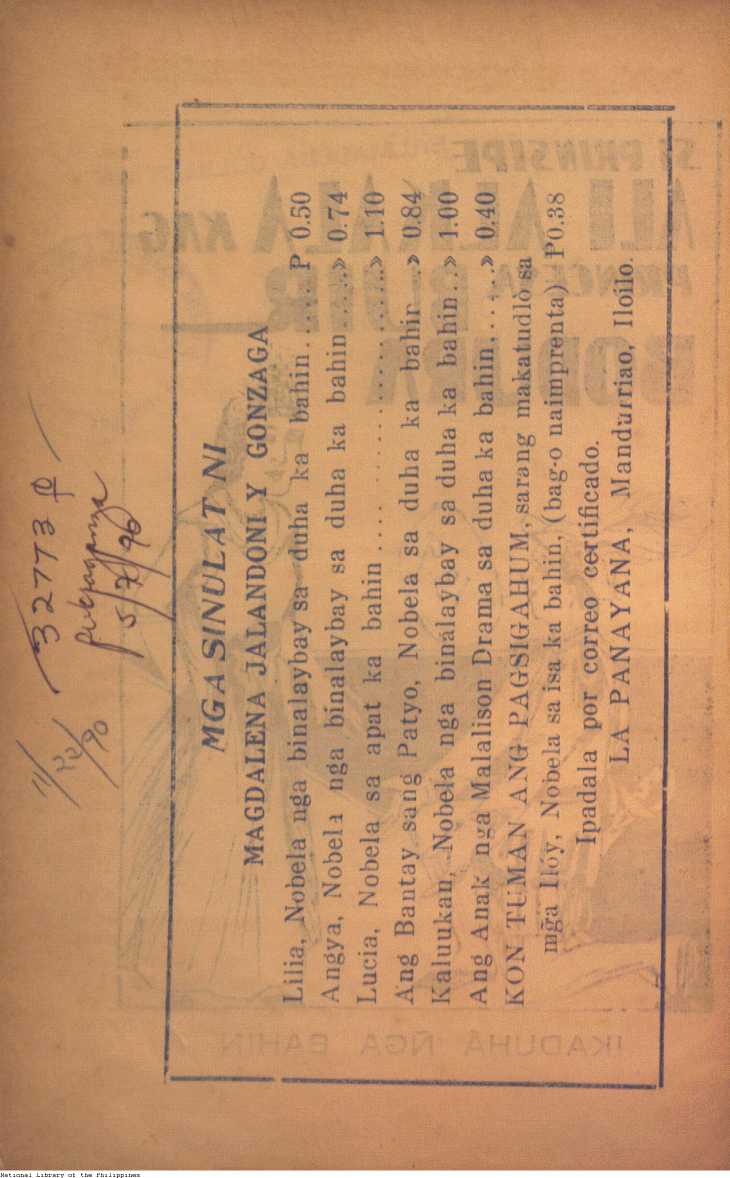 MGA SINULAT NI
MAGDALENA JALANDONI Y GONZAGA
Lilia, Nobela nga binalaybay sa duha ka bahin..... P 0.50
Angya, Nobela nga binalaybay sa duha ka bahin.....» 0.74
Lucia, Nobela sa apat ka bahin .... ...................» 1.10
Ang Bantay sang Patyo, Nobela sa duha ka bahin...» 0.84
Kaluukan, Nobela nga binalaybay sa duha ka bahin..» 1.00
Ang Anak nga Malalison Drama sa duha ka bahin.....» 0.40
KON TUMAN ANG PAGSIGAHUM, sarang makatudlò sa
mg̃a Ilóy, Nobela sa isa ka bahin, (bag-o naimprenta) P0.38
Ipadala por correo certificado.
LA PANAYANA, Mandurriao, Iloilo.
32773
5/7/90
11/20/90
SI PRINSIPE
ALI ALKALA KAG
PRINCESA
IKADUHÁ ÑGA BAHIN
National Library of the Philippines